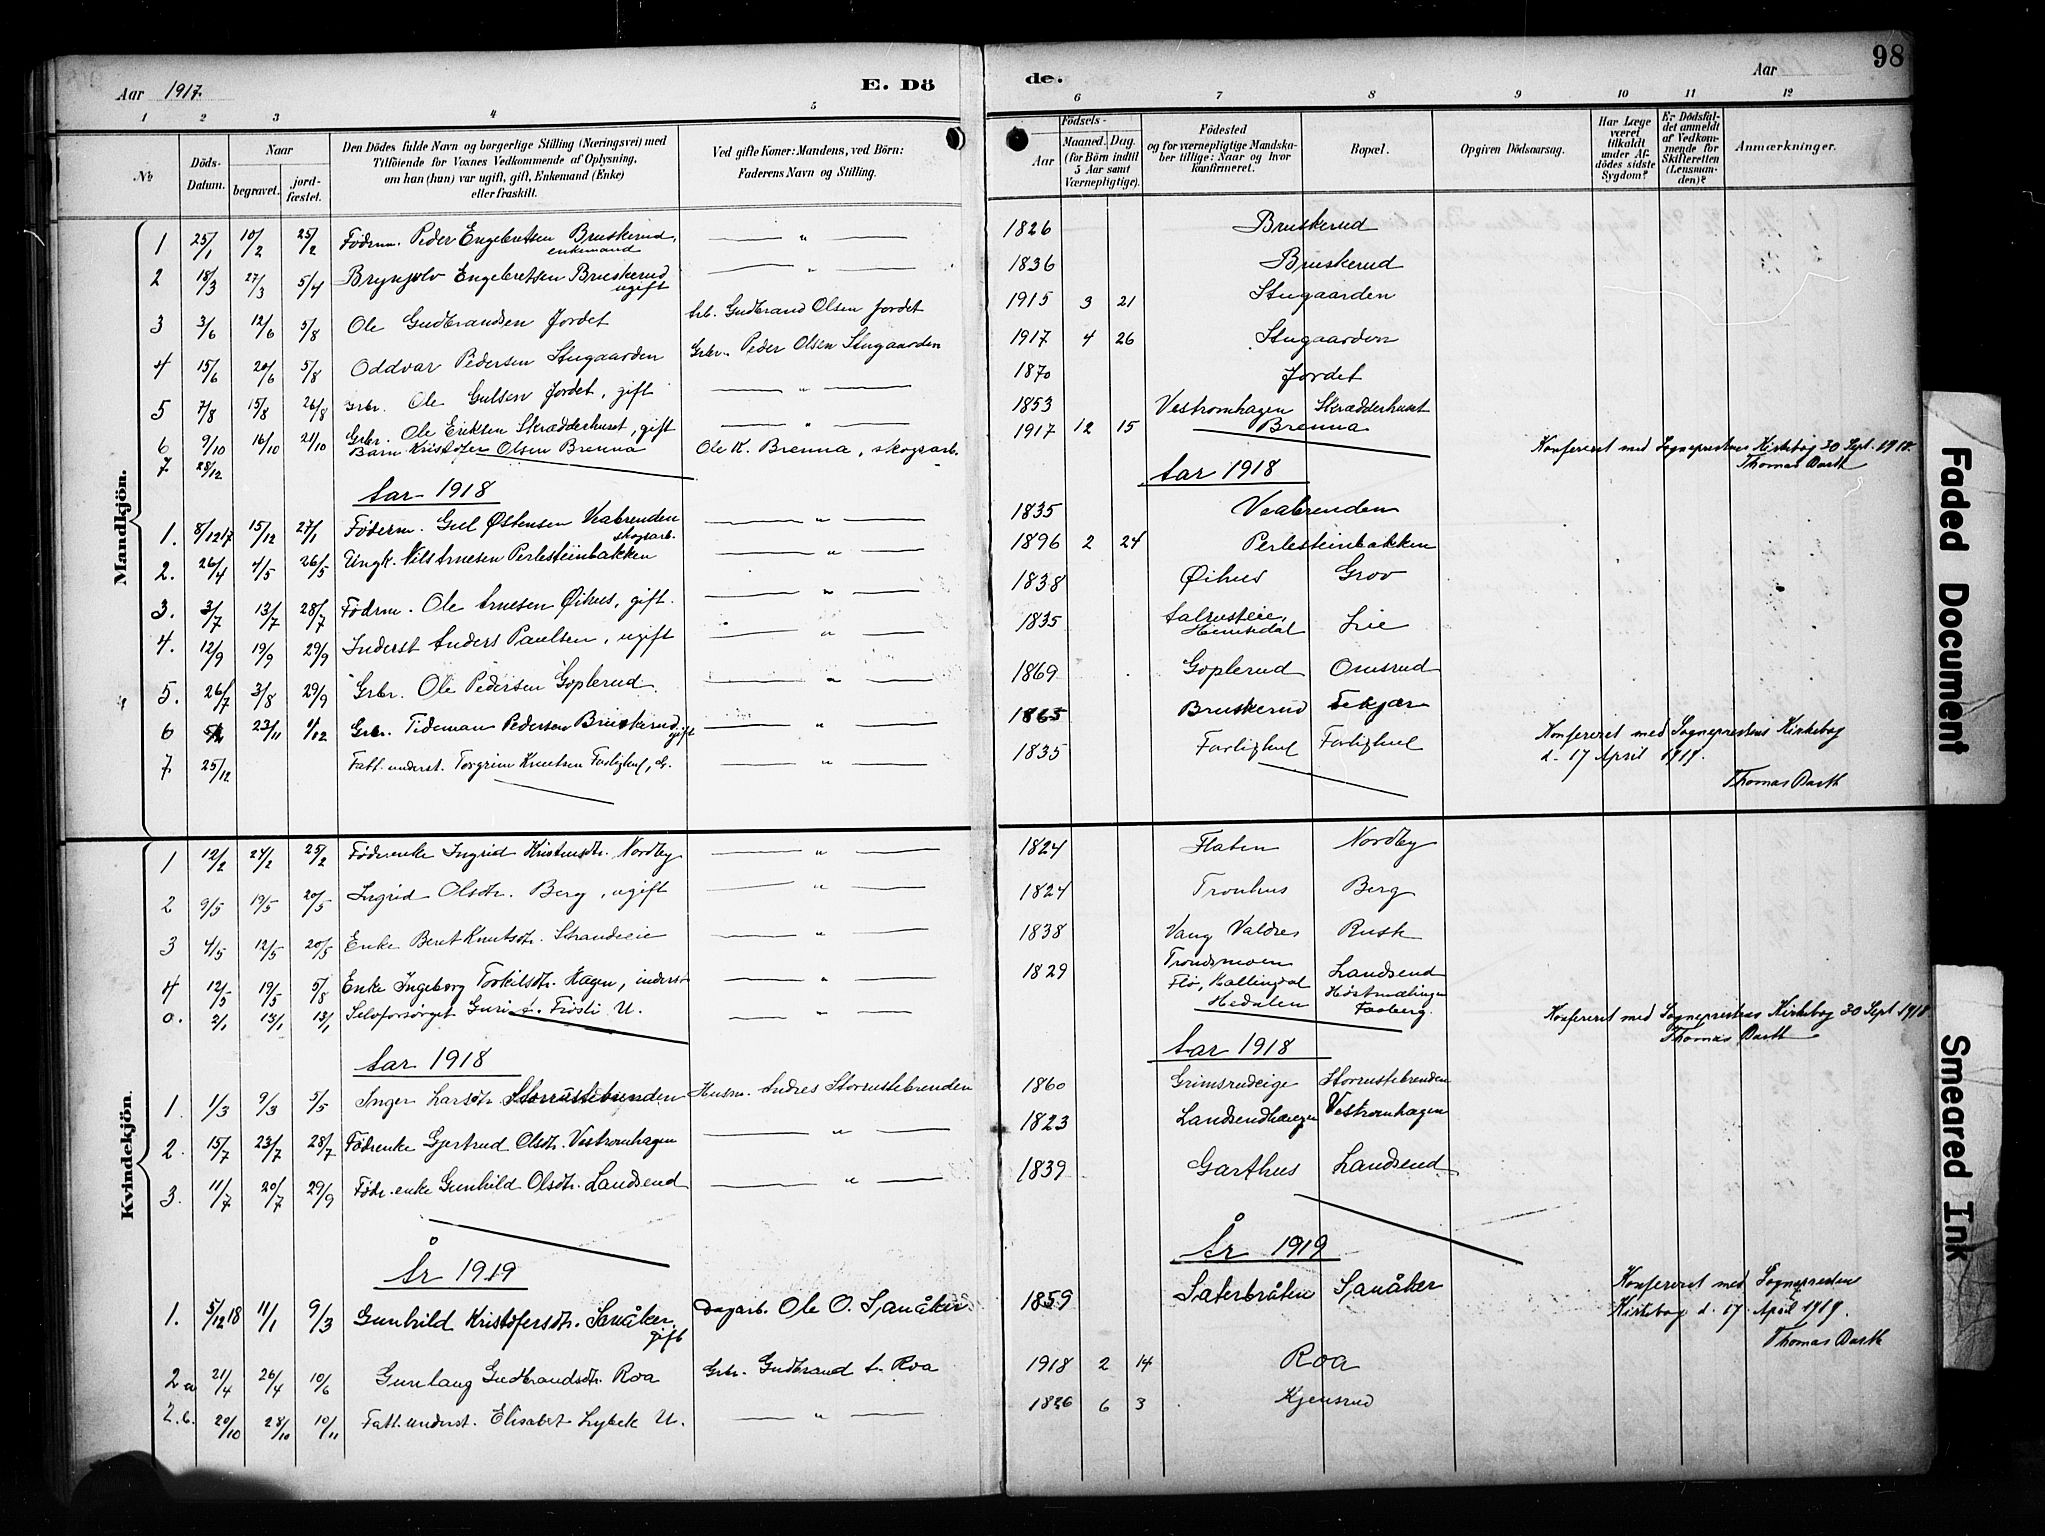 Aar 1917. E. Dö de. Aar 98
1 2 3 4 5 6 7 8 9 10 11 12
No
Döds-Datum.
Naar
begravet.
jord-fæstet.
Den Dödes fulde Navn og borgerlige Stilling (Næringsvei) med
Tilföiende for Voxnes Vedkommende af Oplysning,
om han (hun) var ugift, gift, Enkemand (Enke)
eller fraskilt.
Ved gifte Koner: Mandens, ved Börn:
Faderens Navn og Stilling.
Födsels-
Aar
Maaned. Dag.
(for Börn indtil
5 Aar samt
Værnepligtige).
Födested
og for værnepligtige Mandska-
ber tillige: Naar og hvor
konfirmeret.
Bopæl.
Opgiven Dödsaarsag.
Har Læge
været
tilkaldt
under Af-
dödes sidste
Sygdom?
Er Dödsfal-
det anmeldt
af Vedkom-
mende for
Skifteretten
(Lensman-
den)?
Anmærkninger.
Mandkjön.
1 25/1 10/2 25/2 Föderm. Peder Engebretsen Bruskerud, enkemand — " — 1826 Bruskerud
2 18/3 27/3 5/4 Brynjolv Engebretsen Bruskerud ugift — " — 1836 Bruskerud
3 3/6 12/6 5/8 Ole Gudbrandsen Jordet Arb. Gudbrand Olsen Jordet 1915 3 21 Stugaarden
4 15/6 20/6 5/8 Oddvar Pedersen Stugaarden Grbr. Peder Olsen Stugaarden 1917 4 26 Stugaarden
5 7/8 15/8 26/8 Grbr. Ole Gulsen Jordet, gift — " — 1870 Jordet
6 9/10 16/10 21/10 Grbr. Ole Eriksen Skrædderhuset, gift — " — 1853 Vestromhagen Skrædderhuset
7 28/12 Barn Kristofer Olsen Brenna Ole K. Brenna, skogsarb. 1917 12 15 Brenna
Konfereret med Sogneprestens Kirkebog 30 Sept. 1918.
Thomas Barth
Aar 1918 Aar 1918
1. 8/12 17 15/12 27/1 Föderm. Gul Østensen Veabrenden — " — 1835 Veabrenden
2. 26/4 4/5 26/5 Ungk. Nils Arnesen Perlesteinbakken skogsarb. — " — 1896 2 24 Perlesteinbakken
3. 3/7 13/7 28/7 Födrm. Ole Arnesen Øihus, gift. — " — 1838 Øihus Grov
4. 12/9 19/9 29/9 Inderst Anders Paulsen, ugift — " — 1835 Hemsedal Lie
5. 26/7 3/8 29/9 Grbr. Ole Pedersen Goplerud. — " — 1869 Goplerud Omsrud
6 23/11 1/12 Grbr. Tideman Pedersen Bruskerud, gift — " — 1865 Bruskerud
7. 25/12 Fatt. underst. Torgrim Knutsen — " — 1835
Konfereret med Sogneprestens Kirkebog
d. 17 April 1919.
Thomas Barth
Kvindekjön.
1 12/2 24/2 25/2 Föderenke Ingrid Nordby — " — 1824 Flaten Nordby
2 9/5 19/5 20/5 Ingrid Olsdtr. Berg, ugift — " — 1824 Tronhus Berg
3 4/5 12/5 20/5 Enke Berit Knutsdtr. Strandeie — " — 1838 Vang Valdres Rusk
4 12/5 19/5 5/8 Enke Ingeborg Torkilsdtr. Hagen, inderst — " — 1829 Trondsmoen Flø, Hallingdal Landsend
0. 2/1 13/1 13/1 Selvforsørget Guri A. Frösli U. — " — Hedalen Faaberg.
Konfereret med Sogneprestens Kirkebog 30 Sept 1918
Thomas Barth
Aar 1918 Aar 1918
1. 1/3 9/3 5/5 Inger Larsdtr. Storrustebrenden Husm. Andres Storrustebrenden 1860 Grimsrudeige Storrustebrenden
2. 15/7 23/7 28/7 Födrenke Gjertrud Olsdtr. Vestromhagen — " — 1823 Landsendhaugen Vestromhagen
3. 11/7 20/7 29/9 Födr.enke Gunhild Olsdtr. Landsend — " — 1839 Garthus Landsend
År 1919 År 1919
1. 5/12 18 11/1 9/3 Gunhild Kristofersdtr. Småker, gift Dagarb. Ole O. Småker 1859 Saterbråten Småker
Konfereret med Sogneprestens
Kirkebog d. 17. April 1919.
Thomas Barth
2 a 21/4 26/4 10/6 Gunlaug Gudbrandsdtr. Roa Grbr. Gudbrand A. Roa 1918 2 14 Roa
2. b. 20/10 28/10 10/11 Fatt. underst. Elisabet Lybek U. — " — 1826 6 3 Kjensrud
Faded Document
Smeared Ink